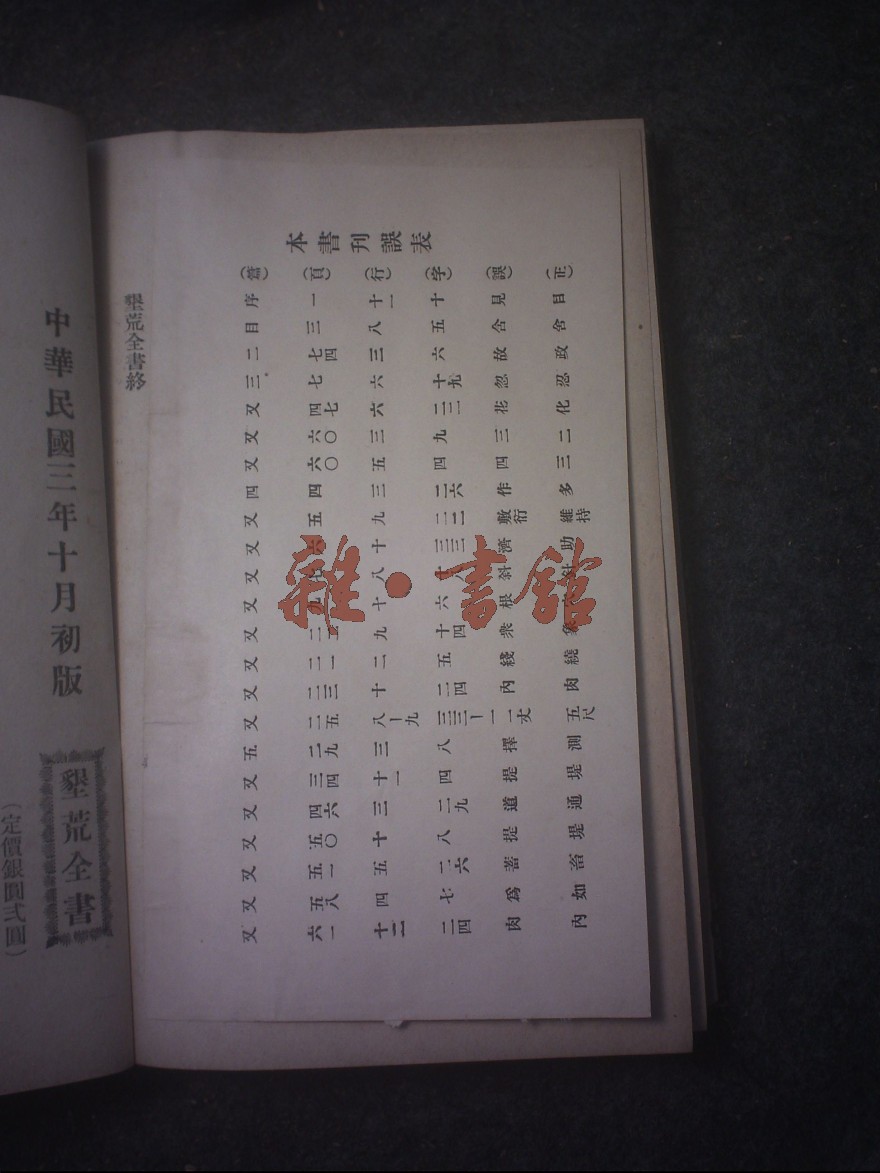 本書刊誤表
(篇) (頁) (行) (字) (誤) (正)
序 一 十一 十 見 目
目 三 八 五 含 舍
二 七四 三 六 故 政
三 七 六 十九 忽 忍
又 四七 六 二三 花 化
又 六〇 三 九 三 二
又 六〇 五 四 四 三
四 四 三 二六 作 多
又 五 九 二二 敷衍 維持
又 六 十 三三 濟 助
又 七 八 斜 針
又 九 十 六 根
又 九 十四 衆
又 二一 二 五 綫 繞
又 二三 十 二四 內 肉
又 二五 八—九 三三—一 一丈 五尺
五 二九 三 八 擇 測
又 三四 十一 四 提 堤
又 四六 三 二九 道 通
又 五〇 十 八 提 堤
又 五一 五 二六 蓄 畜
又 五八 四 七 爲 如
又 六一 十二 二四 肉 內
墾荒全書終
中華民國三年十月初版
墾荒全書
(定價銀圓弍圓)